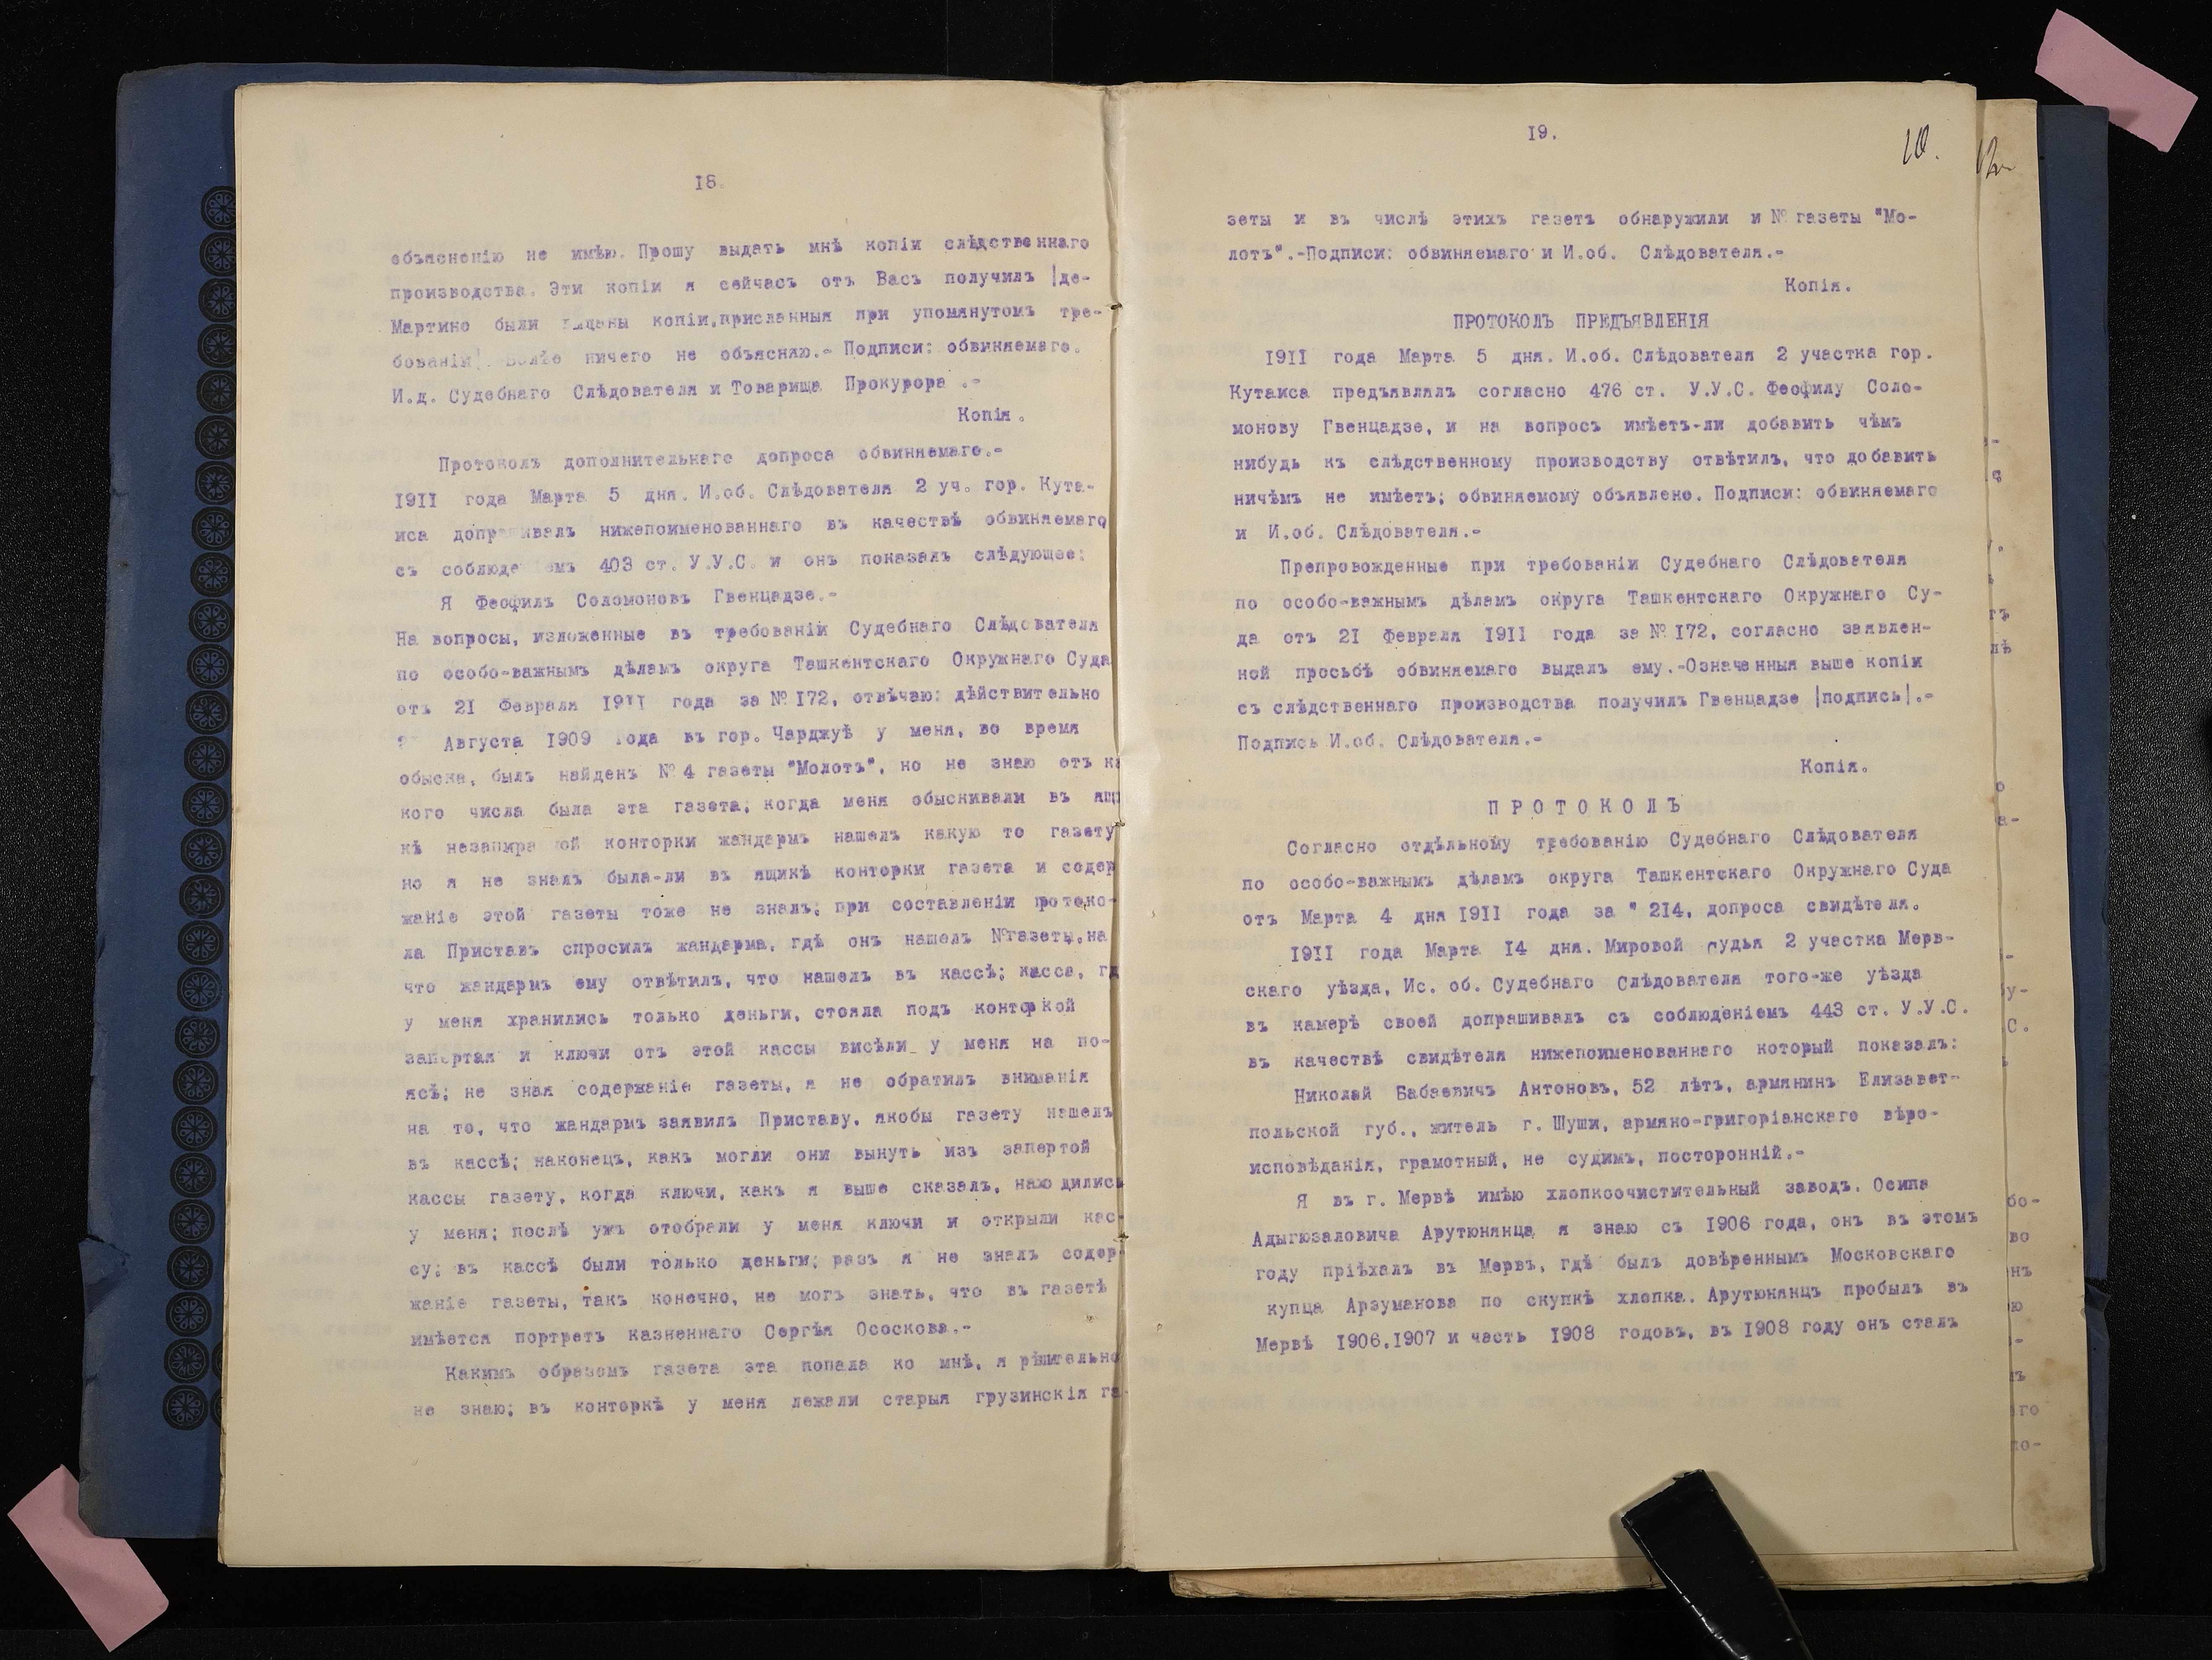 18.
объясненію не имѣю. Прошу выдать мнѣ копіи слѣдственнаго
производства. Эти копіи я сейчасъ отъ Васъ получилъ |де-
Мартино были выданы копіи,присланныя при упомянутомъ тре-
бованіи|. Болѣе ничего не объясняю.- Подписи: обвиняемаго,
И.д. Судебнаго Слѣдователя и Товарища Прокурора .-
Копія.
Протоколъ дополнительнаго допроса обвиняемаго.-
1911 года Марта 5 дня. И.об. Слѣдователя 2 уч. гор. Кута-
иса допрашивалъ нижепоименованнаго въ качествѣ обвиняемаго
съ соблюде емъ 403 ст. У.У.С. и онъ показалъ слѣдующее:
Я Феофилъ Соломоновъ Гвенцадзе.-
На вопросы, изложенные въ требованіи Судебнаго Слѣдователя
по особо-важнымъ дѣламъ округа Ташкентскаго Окружнаго Суда
отъ 21 Февраля 1911 года за № 172, отвѣчаю: дѣйствительно
Августа 1909 года въ гор. Чарджуѣ у меня, во время
обыска, былъ найденъ № 4 газеты "Молотъ", но не знаю отъ ка
кого числа была эта газета; когда меня обыскивали въ ящи
кѣ незапира ой конторки жандармъ нашелъ какую то газету
но я не зналъ была-ли въ ящикѣ конторки газета и содер
жаніе этой газеты тоже не зналъ; при составленіи протоко-
ла Приставъ спросилъ жандарма, гдѣ онъ нашелъ №газеты,на
что жандармъ ему отвѣтилъ, что нашелъ въ кассѣ; касса, гд
у меня хранились только деньги, стояла подъ конторкой
запертая и ключи отъ этой кассы висѣли у меня на по-
ясѣ; не зная содержаніе газеты, я не обратилъ вниманія
на то, что жандармъ заявилъ Приставу, якобы газету нашелъ
въ кассѣ; наконецъ, какъ могли они вынуть изъ запертой
кассы газету, когда ключи, какъ я выше сказалъ, находились
у меня; послѣ ужъ отобрали у меня ключи и открыли кас-
су; въ кассѣ были только деньги; разъ я не зналъ содер-
жаніе газеты, такъ конечно, не могъ знать, что въ газетѣ
имѣется портретъ казненнаго Сергѣя Ососкова.-
Какимъ образомъ газета эта попала ко мнѣ, я рѣшительно
не знаю; въ конторкѣ у меня лежали старыя грузинскія га-
19.
10.
зеты и въ числѣ этихъ газетъ обнаружили и № газеты "Мо-
лотъ".-Подписи: обвиняемаго и И.об. Слѣдователя.-
Копія.
ПРОТОКОЛЪ ПРЕДЪЯВЛЕНІЯ
1911 года Марта 5 дня. И.об. Слѣдователя 2 участка гор.
Кутаиса предъявлялъ согласно 476 ст. У.У.С. Феофилу Соло-
монову Гвенцадзе, и на вопросъ имѣетъ-ли добавить чѣмъ
нибудь къ слѣдственному производству отвѣтилъ, что добавить
ничѣмъ не имѣетъ; обвиняемому объявлено. Подписи: обвиняемаго
и И.об. Слѣдователя.-
Препровожденные при требованіи Судебнаго Слѣдователя
по особо-важнымъ дѣламъ округа Ташкентскаго Окружнаго Су-
да отъ 21 Февраля 1911 года за № 172, согласно заявлен-
ной просьбѣ обвиняемаго выдалъ ему.-Означенныя выше копіи
съ слѣдственнаго производства получилъ Гвенцадзе |подпись|.-
Подпись И.об. Слѣдователя.-
Копія.
ПРОТОКОЛЪ
Согласно отдѣльному требованію Судебнаго Слѣдователя
по особо-важнымъ дѣламъ округа Ташкентскаго Окружнаго Суда
отъ Марта 4 дня 1911 года за " 214, допроса свидѣтеля.
1911 года Марта 14 дня. Мировой Судья 2 участка Мерв-
скаго уѣзда, Ис. об. Судебнаго Слѣдователя того-же уѣзда
въ камерѣ своей допрашивалъ съ соблюденіемъ 443 ст. У.У.С.
въ качествѣ свидѣтеля нижепоименованнаго который показалъ:
Николай Бабаевичъ Антоновъ, 52 лѣтъ, армянинъ Елизавет-
польской губ., житель г. Шуши, армяно-григоріанскаго вѣро-
исповѣданія, грамотный, не судимъ, посторонній.-
Я въ г. Мервѣ имѣю хлопкоочистительный заводъ. Осипа
Адыгюзаловича Арутюнянца я знаю съ 1906 года, онъ въ этомъ
году пріѣхалъ въ Мервъ, гдѣ былъ довѣреннымъ Московскаго
купца Арзуманова по скупкѣ хлопка. Арутюнянцъ пробылъ въ
Мервѣ 1906,1907 и часть 1908 годовъ, въ 1908 году онъ сталъ